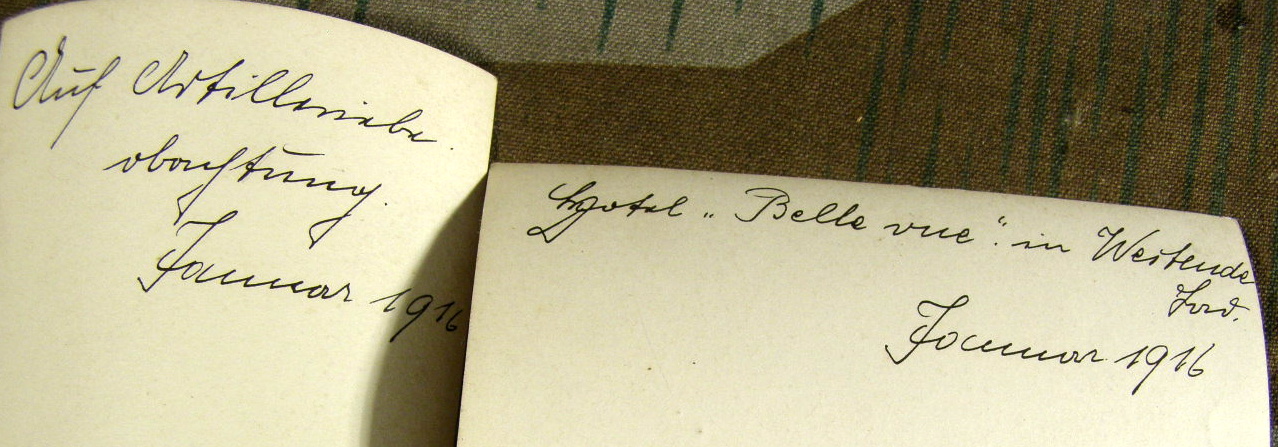 Auf Artilleriebe
obachtung.
Januar 1916
Hotel „Belle vue“ in Westende
Januar 1916